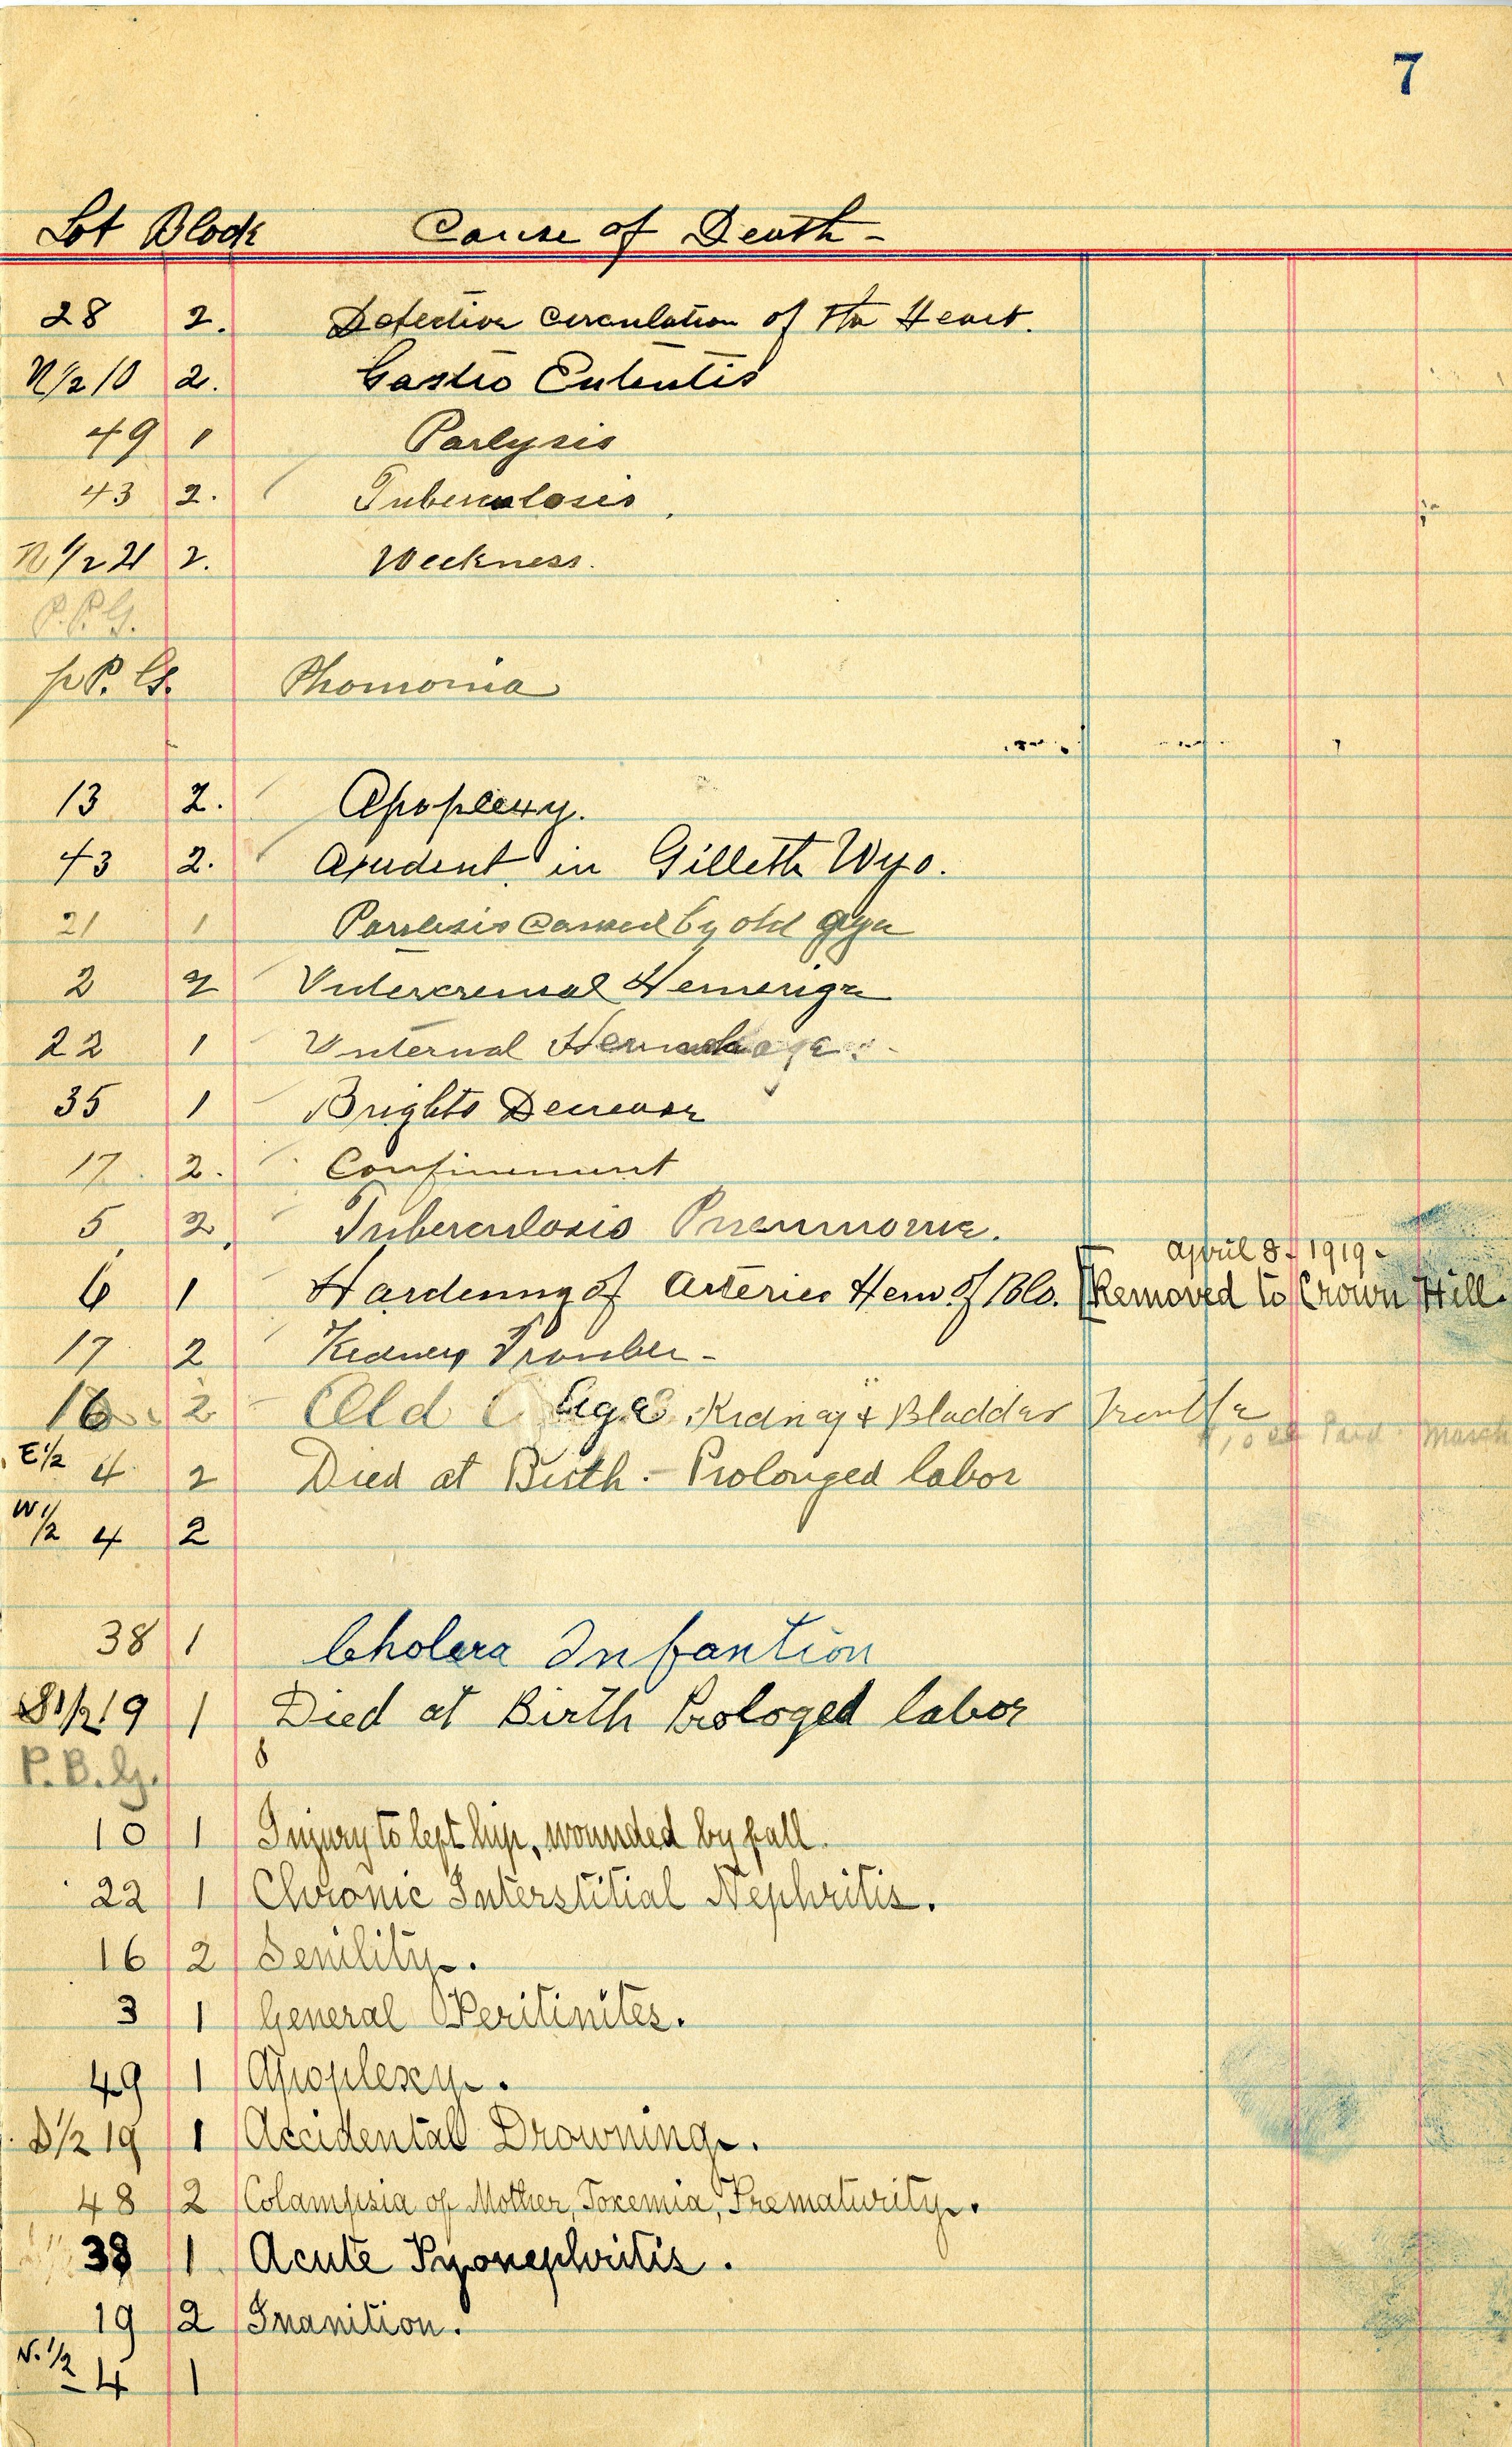 7
Lot Block Cause of Death -
28 2. Defective Circulation of the Heart.
N 1/2 10 2. Gastro Enteritis
49 1 Parlysis
43 2. Tuberculosis
N 1/2 21 2. Weekness.
P.P.G.
P.P. G. Phomonia
13 2. Apoplexy.
43 2. Axident in Gillette Wyo.
21 1 caused by old age
2 2
22 1 Internal
35 1 Brights
17 2. Confinement
5 2. Tuberculosis Pneumonia.
April 8 - 1919 -
6 1 Hardening of Arteries Hem. of Blo. [Removed to Crown Hill.
17 2 Kidney Trouble -
16 2 Old Age. Kidney & Bladder Trouble
Paid March
E 1/2 4 2 Died at Birth - Prolonged labor
W 1/2 4 2
38 1 Cholera Infantion
S 1/2 19 1 Died at Birth Prologed labor
P.B.G.
10 1 Injury to left hip, wounded by fall.
22 1 Chronic Interstitial Nephritis.
16 2 Senility.
3 1 General Peritinites.
49 1 Apoplexy.
S 1/2 19 1 Accidental Drowning.
48 2 Colampsia of Mother, Toxemia, Prematurity.
38 1 Acute Pyonephritis.
19 2 Inanition.
N. 1/2 4 1